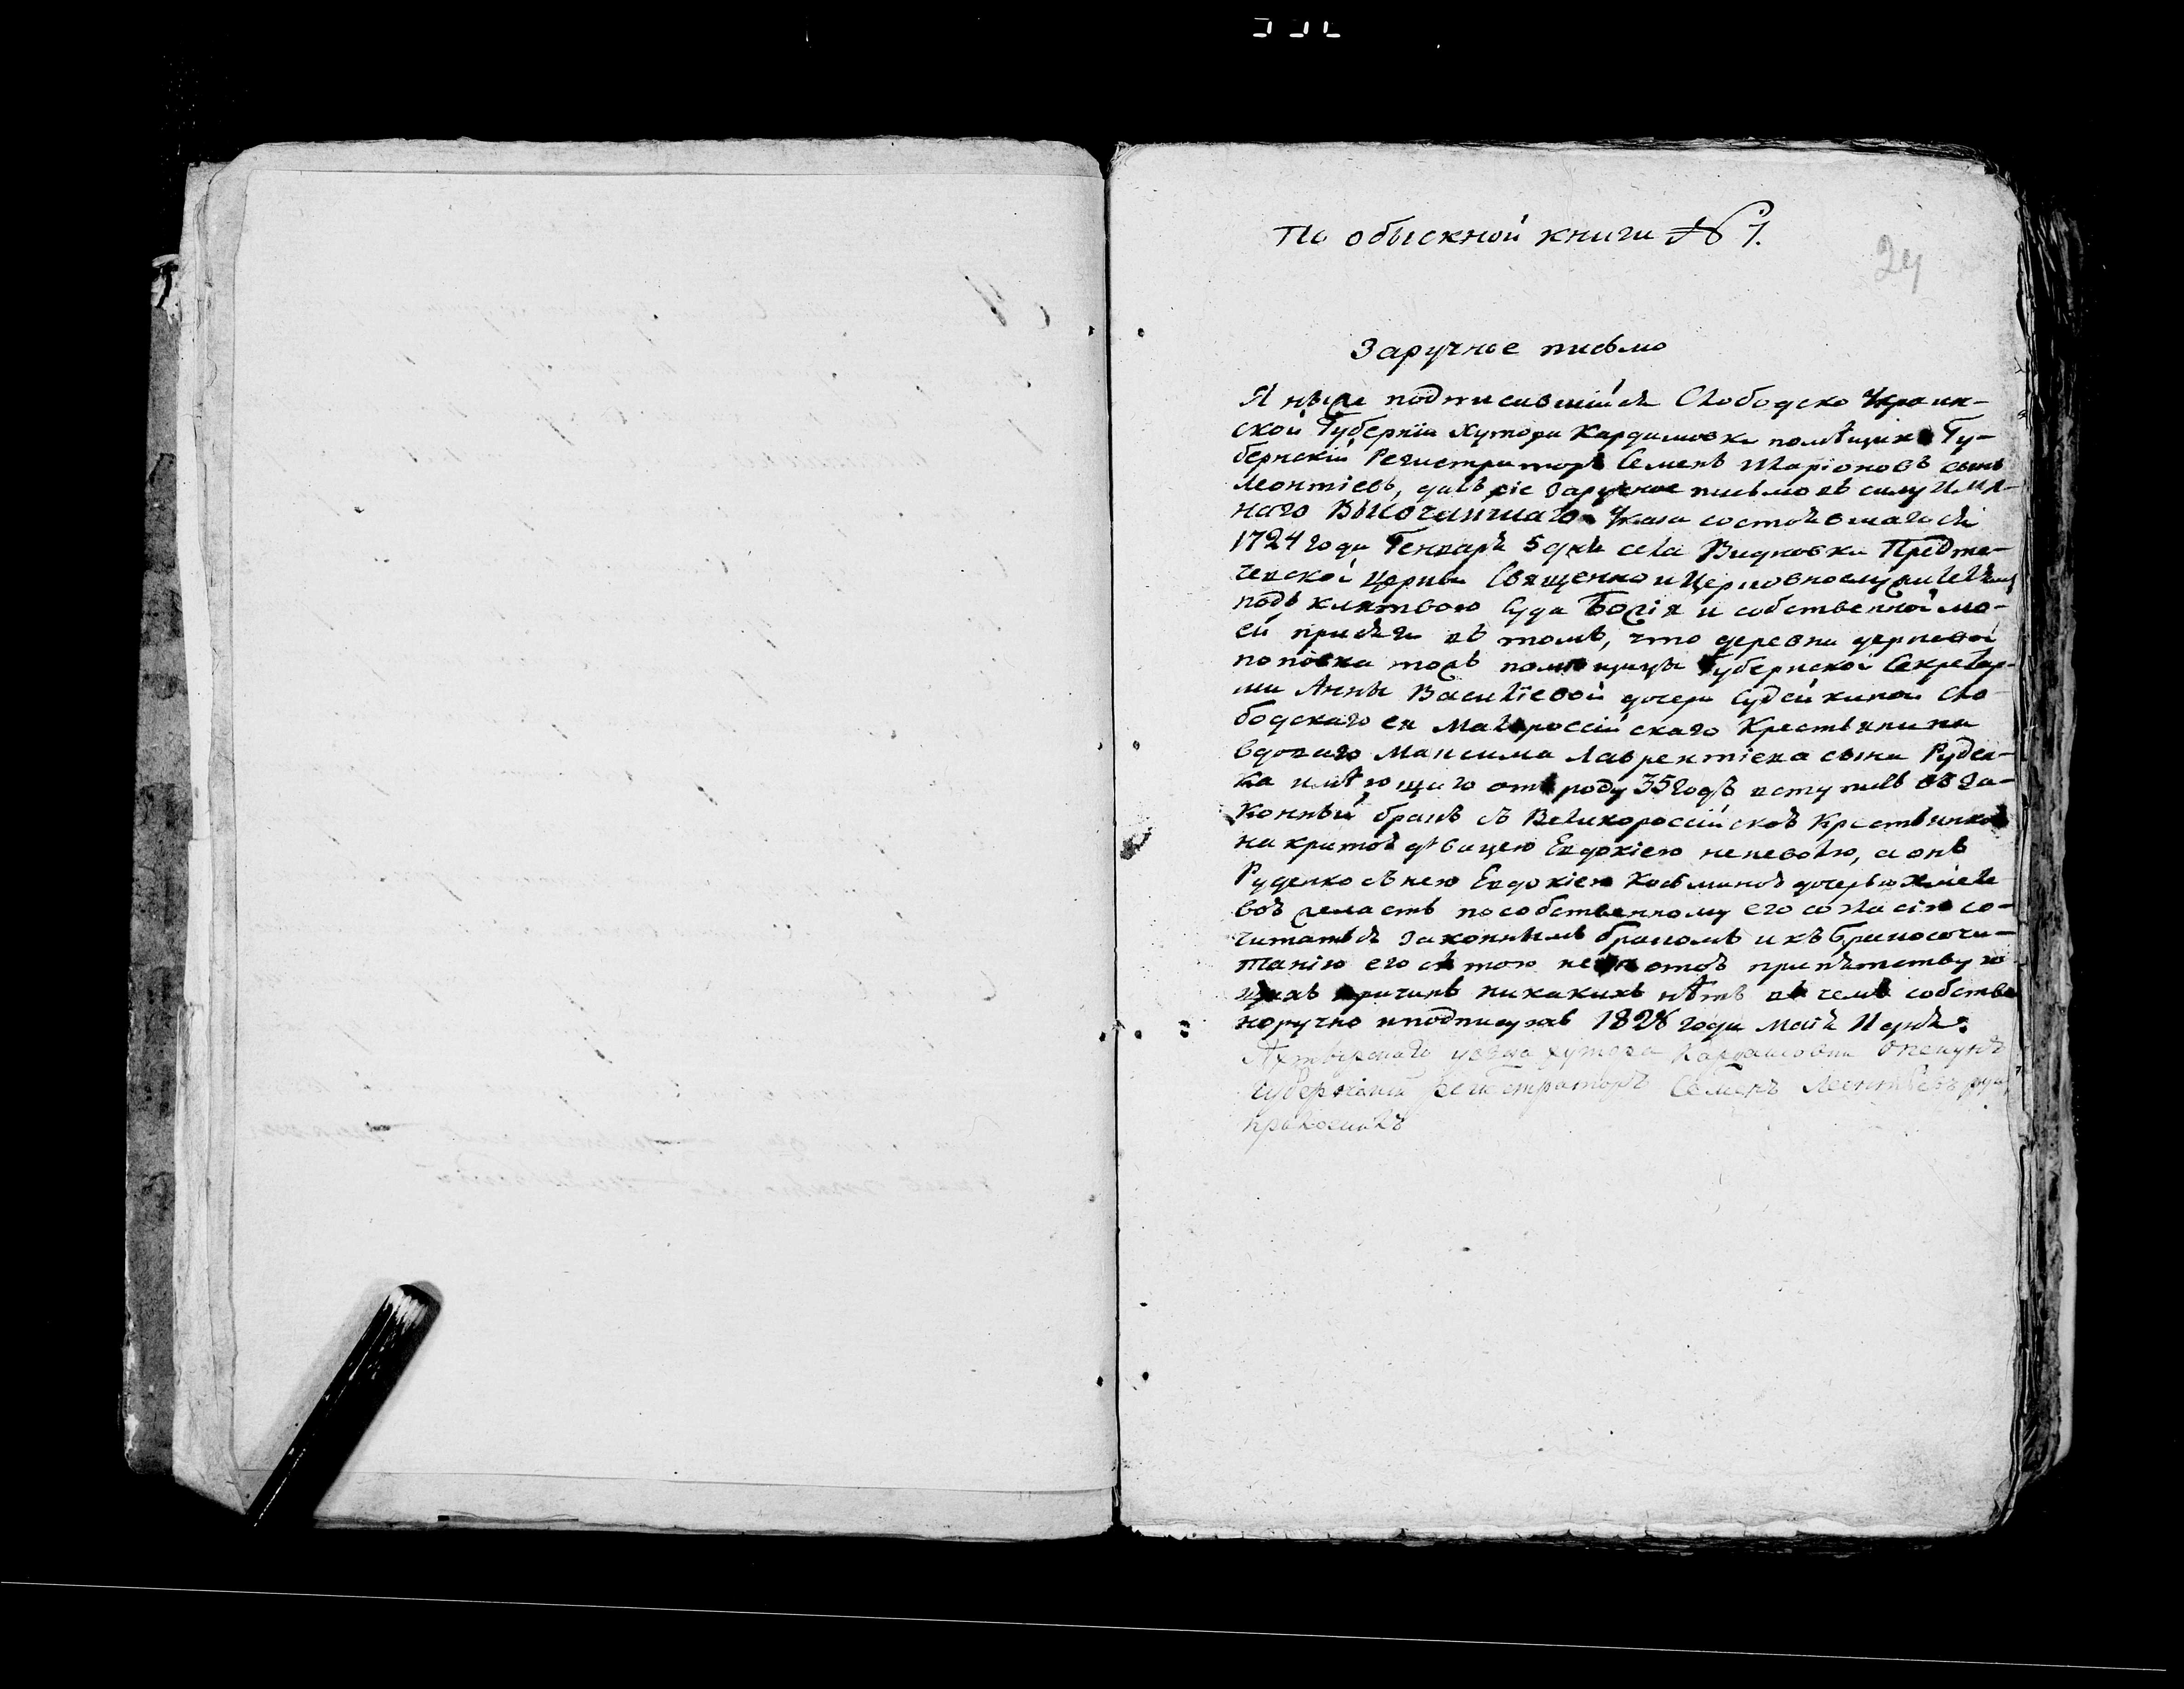 По обыскной книги № 7.
24
Заручное письмо
Я ниже подписавшійся Слободско Украин-
ской Губерніи хутора Кардашовки помѣщикъ Гу-
бернскій Регистраторъ Семенъ Иларіоновъ сынъ
Леонтіевъ, далъ сіе заручное письмо въ силу Имян-
наго Высочайшаго Указа состоявшагося
1724 года Генваря 5 дня села Видновки Предте-
чевской Церкви Священно и Церковнослужителямъ
подъ клятвою Суда Божія и собственной мо-
ей присяги въ томъ, что деревни
поповка тожъ помѣщицы Губернской Секретар-
ши Анны Василіевой дочери Судейкиной Сло-
бодскаго ея Малороссійскаго Крестьянина
вдоваго Максима Лаврентіева сына Руден-
ка имѣющаго отъ роду 35 годъ вступить въ за-
конный бракъ съ Великороссійскоѣ Крестьянкоѣ
накритоѣ дѣвицею Евдокіею неневолю, а онъ
Руденко съ нею Евдокіею Косьминоѣ дочерью
желаетъ пособственному его согласію со-
читаться законнымъ бракомъ и къ бракосоче-
танію его съ тою не отоѣ припятствую
щихъ причинъ никакихъ нѣтъ въ чемъ собстве
норучно и подписуюсъ 1828 года Маія 11 дня.
Ахтырскаго уѣзда хутора Кардашовки опекунъ
Губернскій регистраторъ Семенъ Леонтьевъ руку
приложилъ